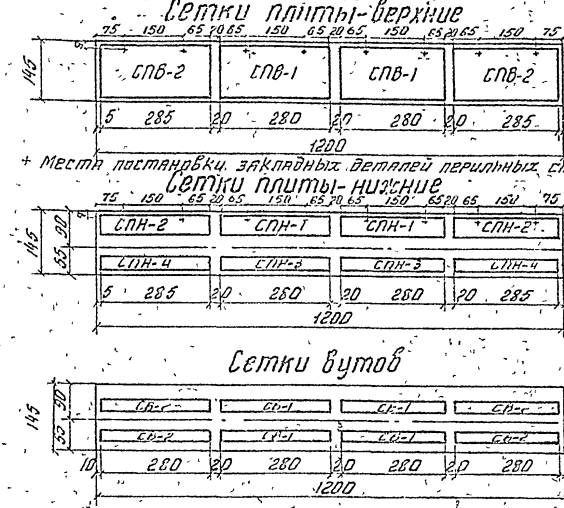 Сетки плиты-верхние
75 150 65 20 65 150 65 20 65 150 65 20 65 150 75
145
СПВ-2 СПВ-1 СПВ-1 СПВ-2
5 285 20 280 20 280 20 285
1200
+ Места постановки закладных деталей перильных
Сетки плиты-нижние
75 150 65 20 65 150 65 20 65 150 65 20 65 150 75
145 90 55
СПН-2 СПН-1 СПН-1 СПН-2
СПН-4 СПН-3 СПН-3 СПН-4
5 285 20 280 20 280 20 285
1200
Сетки вутов
145 90 55
СВ-2 СВ-1 СВ-1 СВ-2
СВ-2 СВ-1 СВ-1 СВ-2
10 280 20 280 20 280 20 280
1200